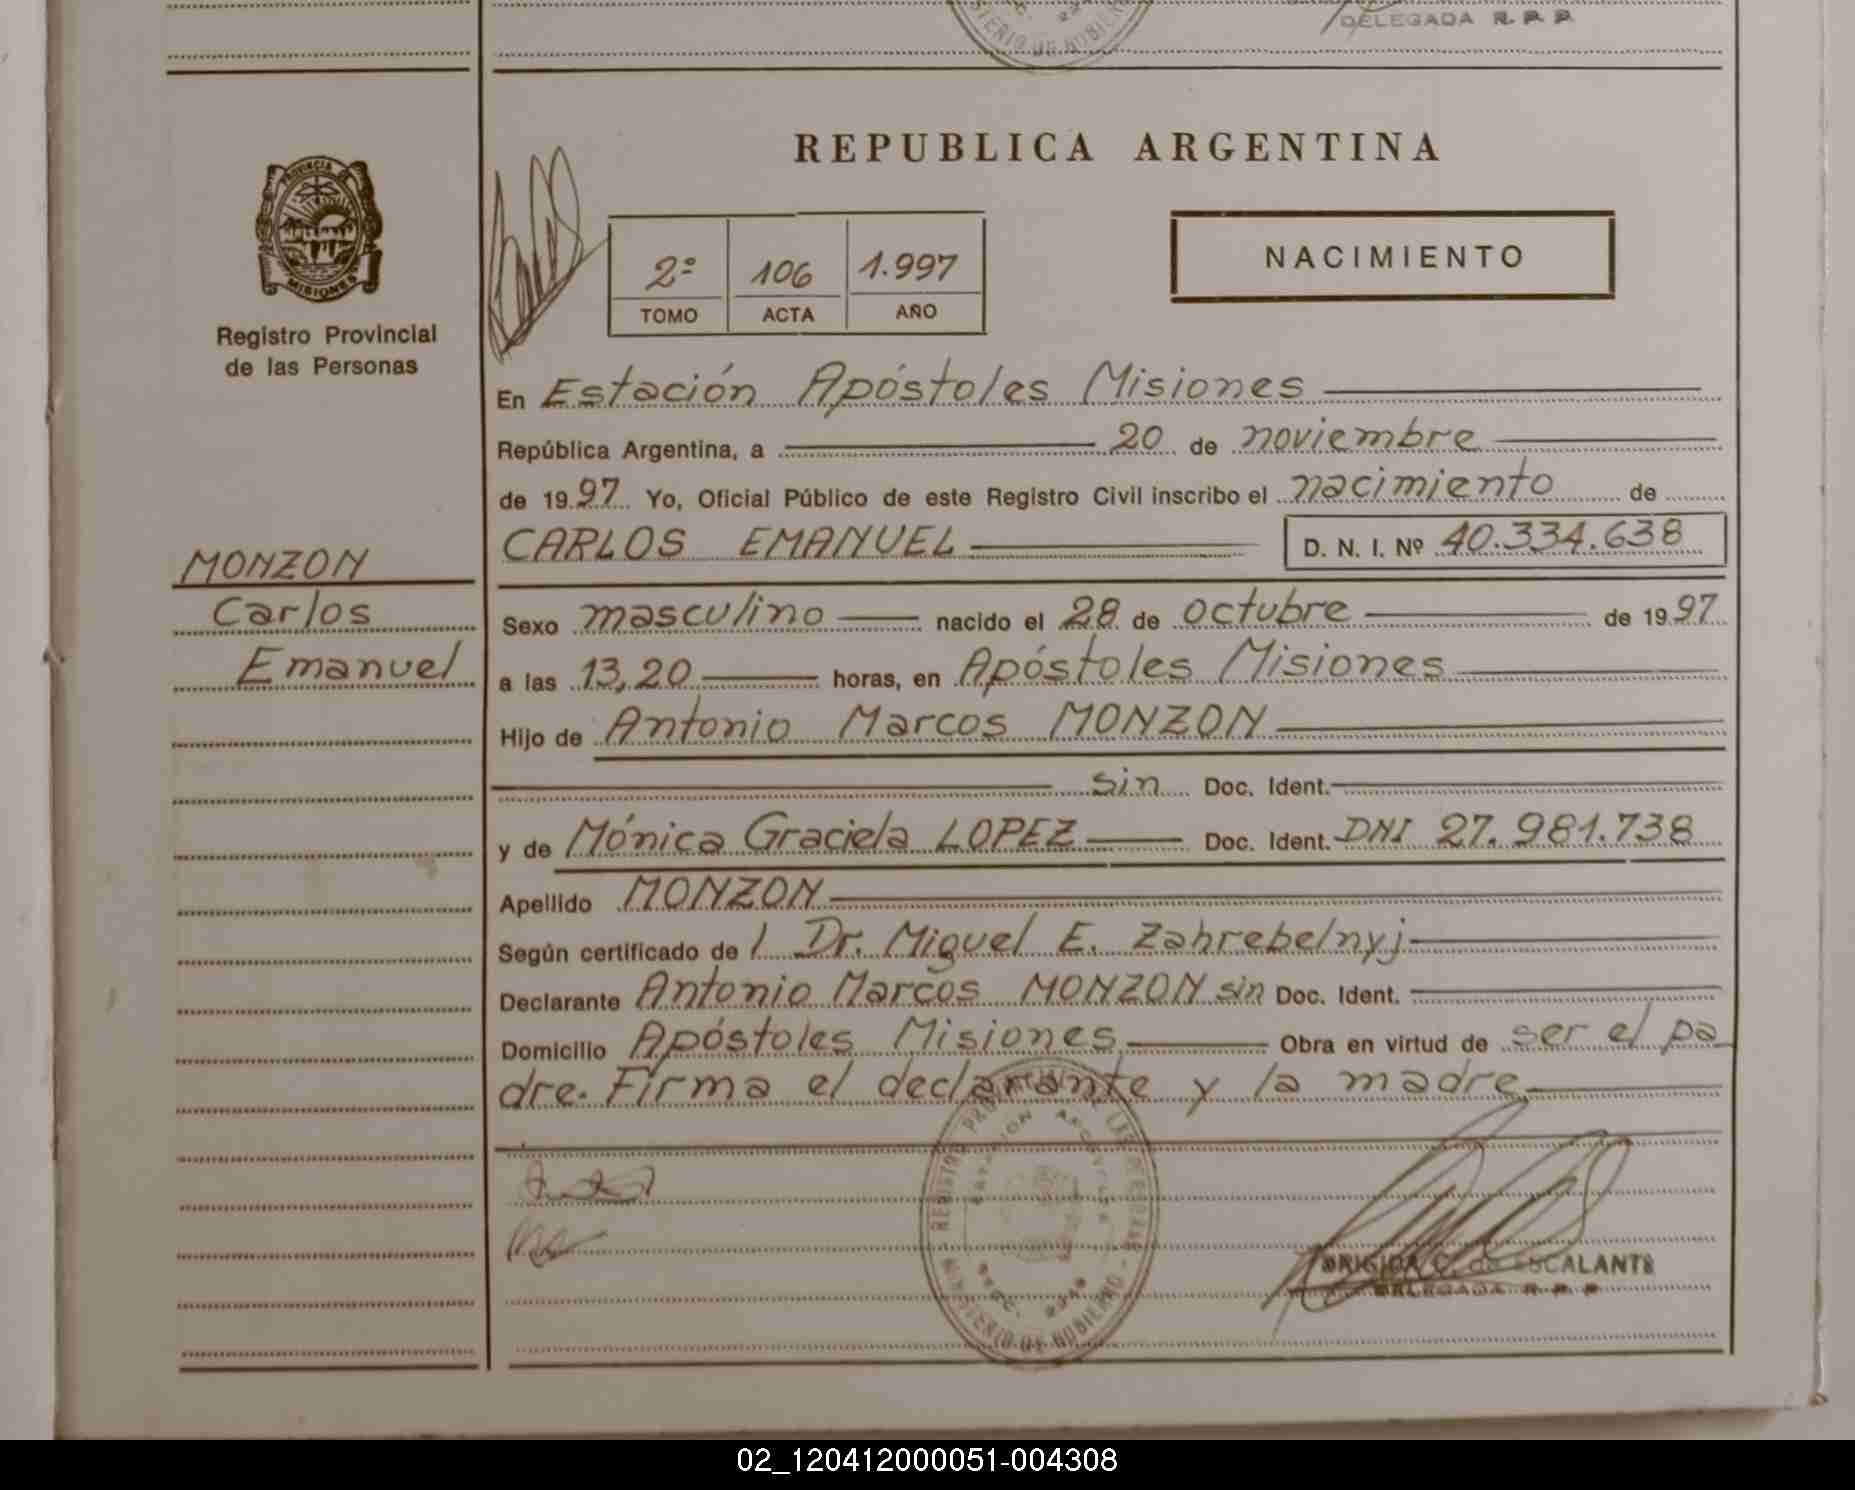 DELEGADA R. P. P.
PROVINCIA DE
MISIONES
Registro Provincial
de las Personas
REPUBLICA ARGENTINA
NACIMIENTO
2º 106 1.997
TOMO ACTA AÑO
En Estación Apóstoles Misiones
República Argentina, a 20 de noviembre
de 1997 Yo, Oficial Público de este Registro Civil inscribo el nacimiento de
CARLOS EMANUEL D. N. I. Nº 40.334.638
MONZON
Carlos
Emanuel
Sexo masculino nacido el 28 de octubre de 1997
a las 13,20 horas, en Apóstoles Misiones
Hijo de Antonio Marcos MONZON
sin Doc. Ident.
y de Mónica Graciela LOPEZ Doc. Ident. DNI 27.981.738
Apellido MONZON
Según certificado de l Dr. Miguel E. Zahrebelnyj
Declarante Antonio Marcos MONZON sin Doc. Ident.
Domicilio Apóstoles Misiones Obra en virtud de ser el pa
dre. Firma el declarante y la madre
REGISTRO PROVINCIAL DE LAS PERSONAS
MINISTERIO DE GOBIERNO
BRIGIDA C. de ESCALANTE
DELEGADA R. P. P.
02_120412000051-004308